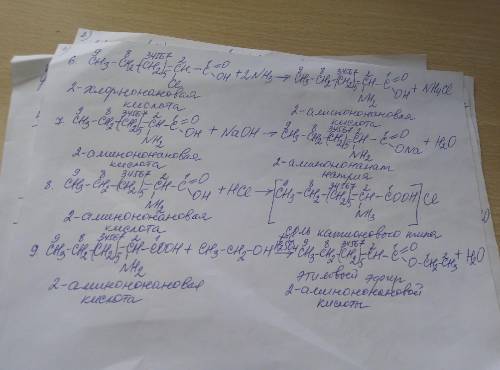 6. CH₃-CH₂-[CH₂]₅-CH-C=O OH + 2NH₃ → CH₃-CH₂-[CH₂]₅-CH-C=O OH + NH₄Cl
Cl NH₂
2-хлорнонановая кислота
2-аминононановая кислота
7. CH₃-CH₂-[CH₂]₅-CH-C=O OH + NaOH → CH₃-CH₂-[CH₂]₅-CH-C=O ONa + H₂O
NH₂ NH₂
2-аминононановая кислота
2-аминононанат натрия
8. CH₃-CH₂-[CH₂]₅-CH-C=O OH + HCl → [CH₃-CH₂-[CH₂]₅-CH-COOH] Cl
NH₂ NH₃
2-аминононановая кислота
соль катионового типа
9. CH₃-CH₂-[CH₂]₅-CH-COOH + CH₃-CH₂-OH → CH₃-CH₂-[CH₂]₅-CH-C=O O-CH₂-CH₃ + H₂O
NH₂ NH₂
2-аминононановая кислота
этиловый эфир 2-аминононановой кислоты